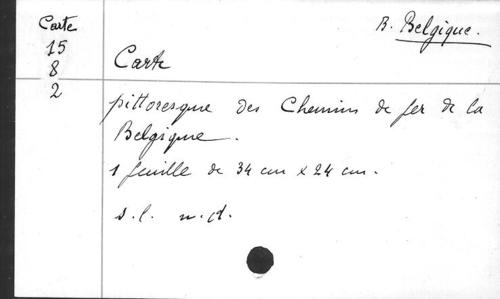 Carte
15
8
2
R. Belgique.
Carte
pittoresque des Chemins de fer de la
Belgique.
1 feuille de 34 cm x 24 cm.
s.l. n.d.